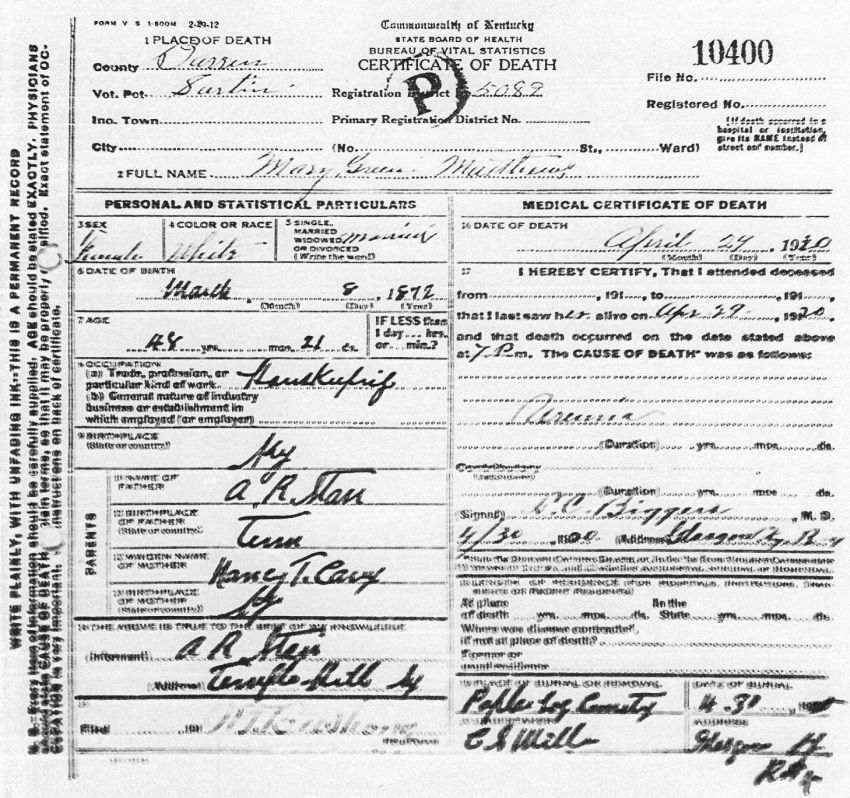 FORM V S 1-500M 2-29-12
Commonwealth of Kentucky
STATE BOARD OF HEALTH
BUREAU OF VITAL STATISTICS
CERTIFICATE OF DEATH
10400
1 PLACE OF DEATH
County
Vot. Pct.
Registration District No. 5089
File No.
Ino. Town
Primary Registration District No.
Registered No.
P
City (No. St., Ward)
[If death occurred in a
hospital or institution,
give its NAME instead of
street and number.]
2 FULL NAME Mary Green Matthews
PERSONAL AND STATISTICAL PARTICULARS
3 SEX
Female
4 COLOR OR RACE
White
5 SINGLE,
MARRIED
WIDOWED
OR DIVORCED
(Write the word)
Married
6 DATE OF BIRTH
March 8, 1872
(Month) (Day) (Year)
7 AGE
48 yrs. mos. 21 ds.
IF LESS than
1 day ... hrs.
or ... min.?
8 OCCUPATION
(a) Trade, profession, or
particular kind of work
(b) General nature of industry
business or establishment in
which employed (or employer)
9 BIRTHPLACE
(State or country)
Ky
PARENTS
10 NAME OF
FATHER
A. R. Starr
11 BIRTHPLACE
OF FATHER
(State or country)
Tenn
12 MAIDEN NAME
OF MOTHER
Nancy T.
13 BIRTHPLACE
OF MOTHER
(State or country)
Ky
14 THE ABOVE IS TRUE TO THE BEST OF MY KNOWLEDGE
(Informant) A R Starr
(Address) Temple Hill Ky
15
Filed 191
REGISTRAR
MEDICAL CERTIFICATE OF DEATH
16 DATE OF DEATH
April 29, 1920
(Month) (Day) (Year)
17 I HEREBY CERTIFY, That I attended deceased
from , 191 , to , 191 ,
that I last saw her alive on Apr 29 1920,
and that death occurred on the date stated above
at 7 P m. The CAUSE OF DEATH* was as follows:
(Duration) yrs. mos. ds.
Contributory
(Duration) yrs. mos ds.
Signed Biggers, M. D.
(Address) Glasgow Ky
18 LENGTH OF RESIDENCE (FOR HOSPITALS, INSTITUTIONS, TRAN-
SIENTS OR RECENT RESIDENTS)
At place
of death yrs. mos. ds.
In the
State yrs. mos. ds.
Where was disease contracted,
if not at place of death?
Former or
usual residence
19 PLACE OF BURIAL OR REMOVAL
DATE OF BURIAL
20 UNDERTAKER
ADDRESS
Glasgow
WRITE PLAINLY, WITH UNFADING INK--THIS IS A PERMANENT RECORD
N. B.--Every item of information should be carefully supplied. AGE should be stated EXACTLY. PHYSICIANS
should state CAUSE OF DEATH in plain terms, so that it may be properly classified. Exact statement of OC-
CUPATION is very important. See instructions on back of certificate.